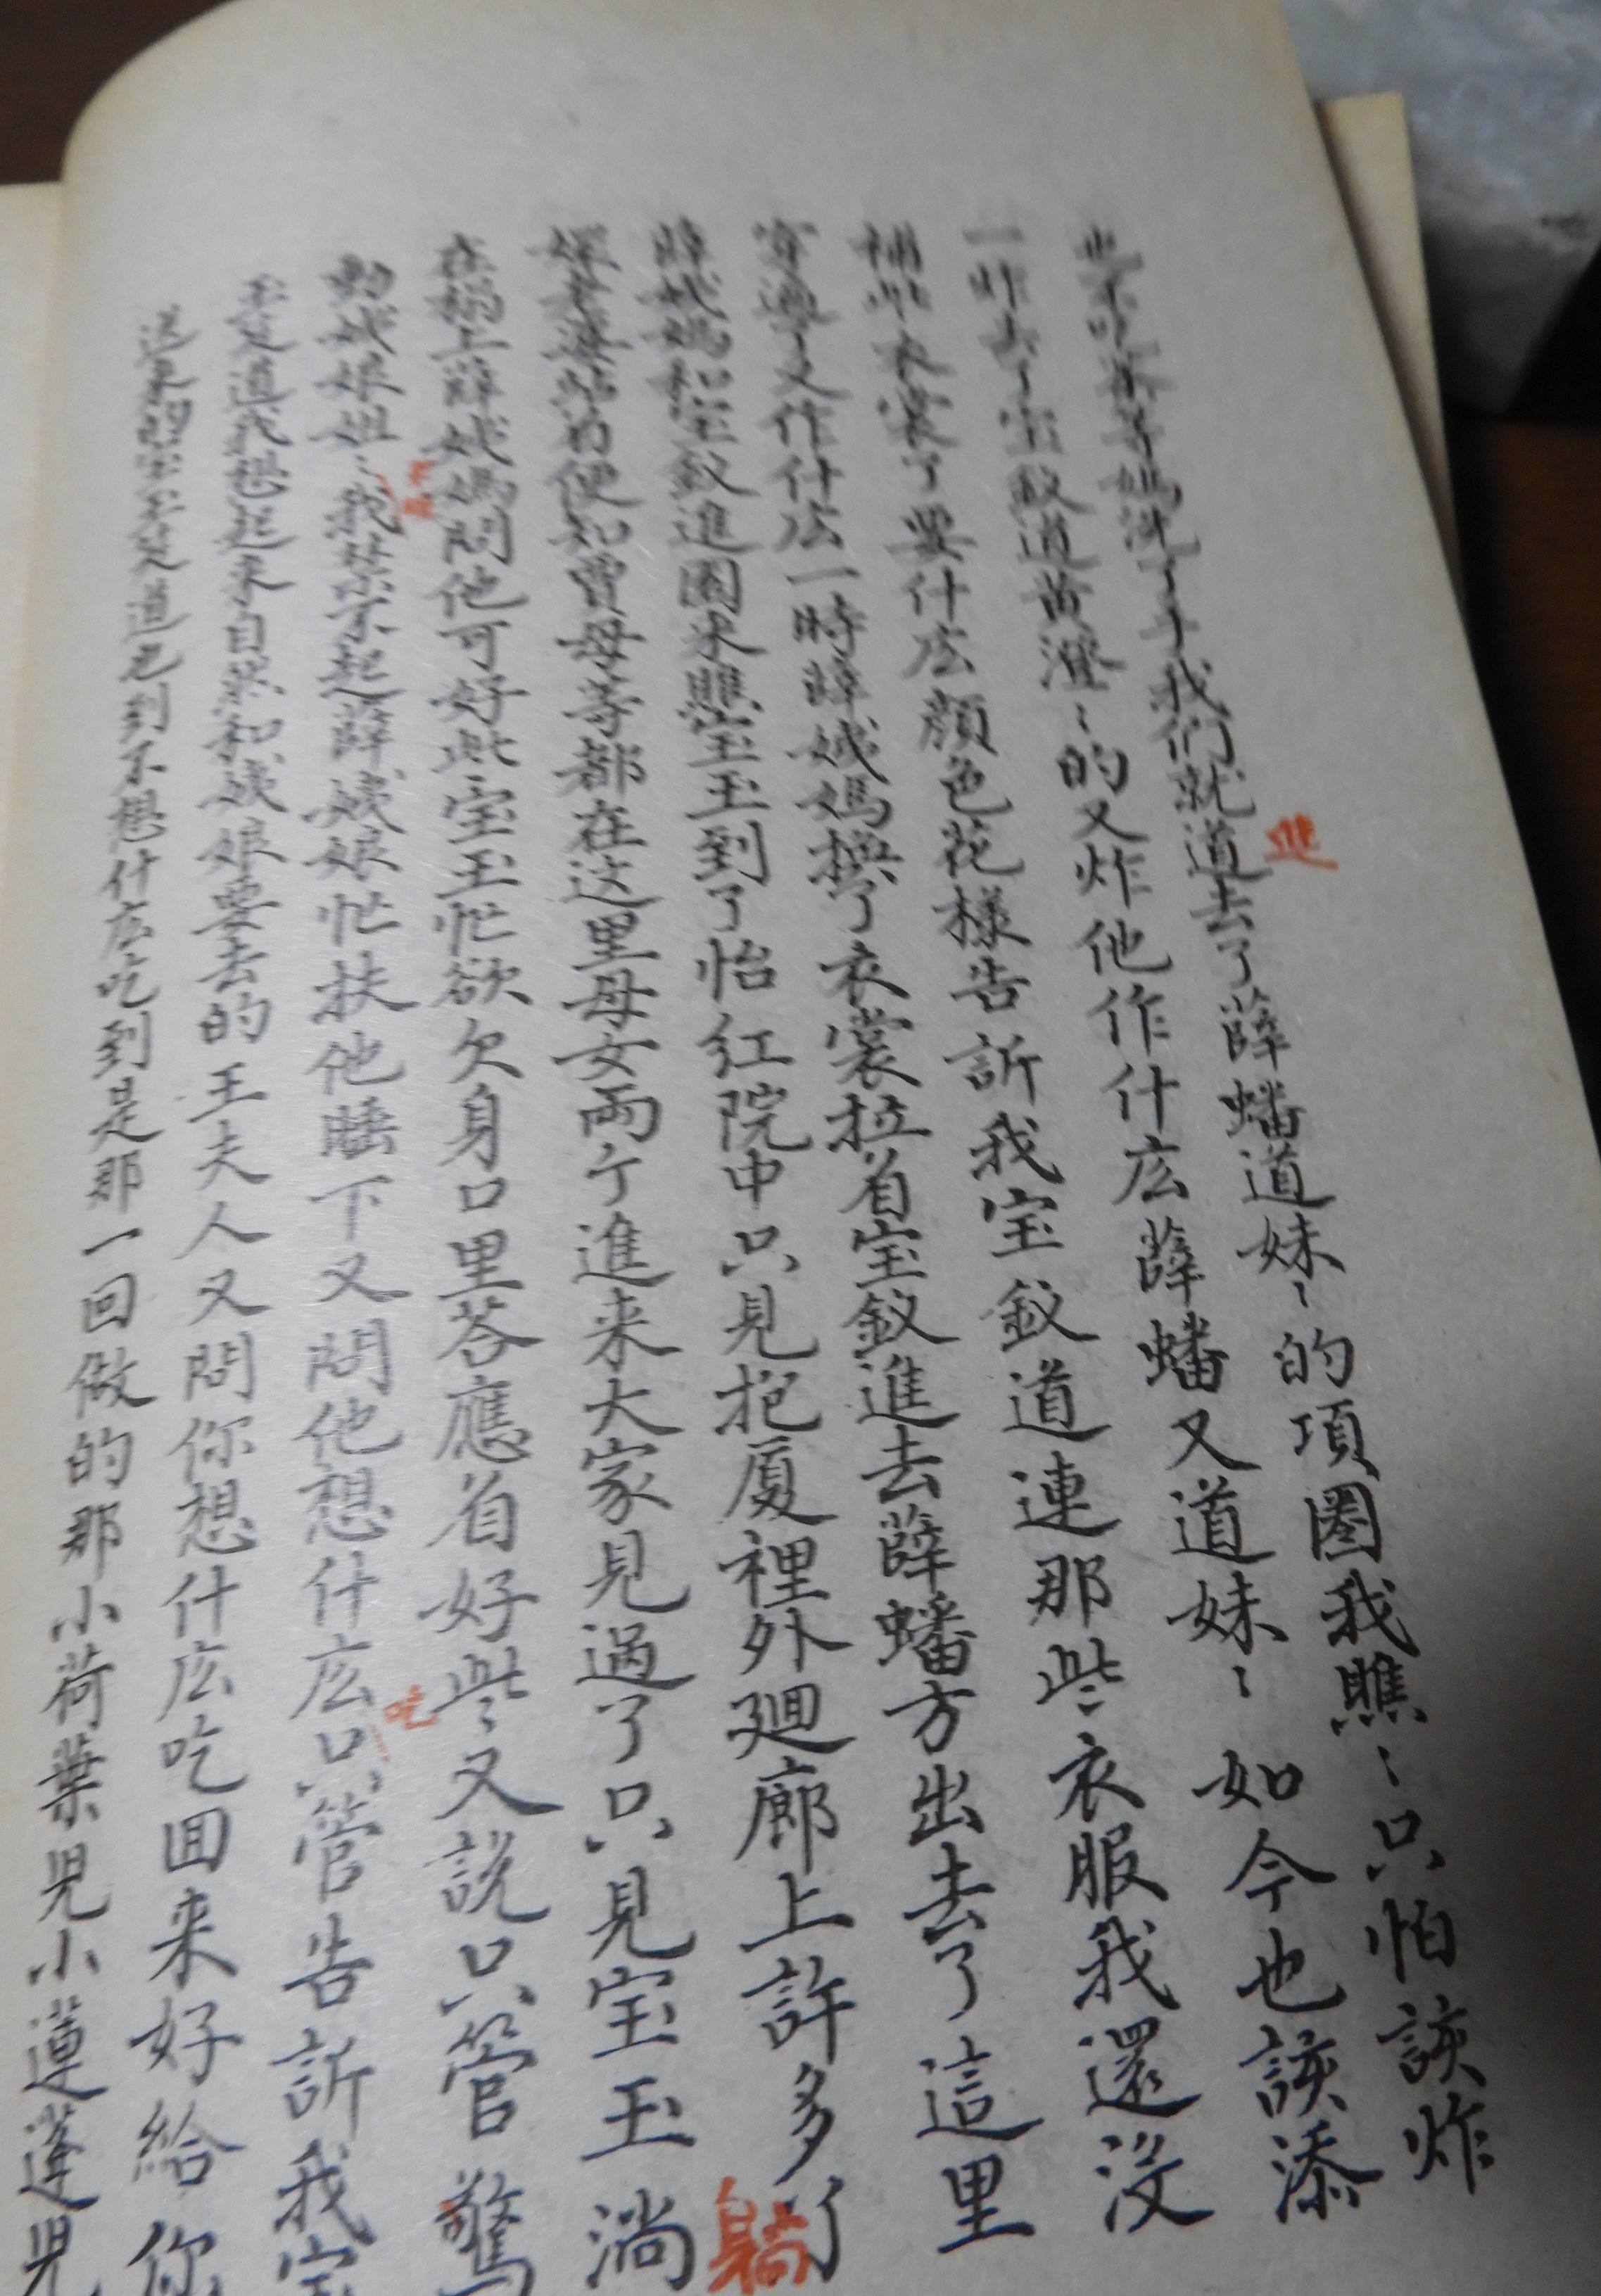 也不吃茶等媽洗了手我們就道去了薛蟠道妹〻的項圈我瞧〻只怕該炸
進
一炸去了宝釵道黄澄〻的又炸他作什庅薛蟠又道妹〻如今也該添
補些衣裳了要什庅顔色花樣告訴我宝釵道連那些衣服我還没
穿遍了又作什庅一時薛姨媽換了衣裳拉着宝釵進去薛蟠方出去了這里
薛姨媽和宝釵進園来瞧宝玉到了怡红院中只見抱厦裡外廻廊上許多丫
嬛老婆站着便知賈母等都在这里母女両个進来大家見過了只見宝玉淌
躺
在榻上薛姨媽問他可好些宝玉忙欲欠身口里荅應着好些〻又説只管驚
動姨娘姐〻我禁不起薛姨娘忙扶他睡下又問他想什庅只管告訴我宝
吃
玉笑道我想起来自然和姨娘要去的王夫人又問你想什庅吃囬来好給你
送来的宝玉笑道也到不想什庅吃到是那一回做的那小荷葉児小蓮蓬児